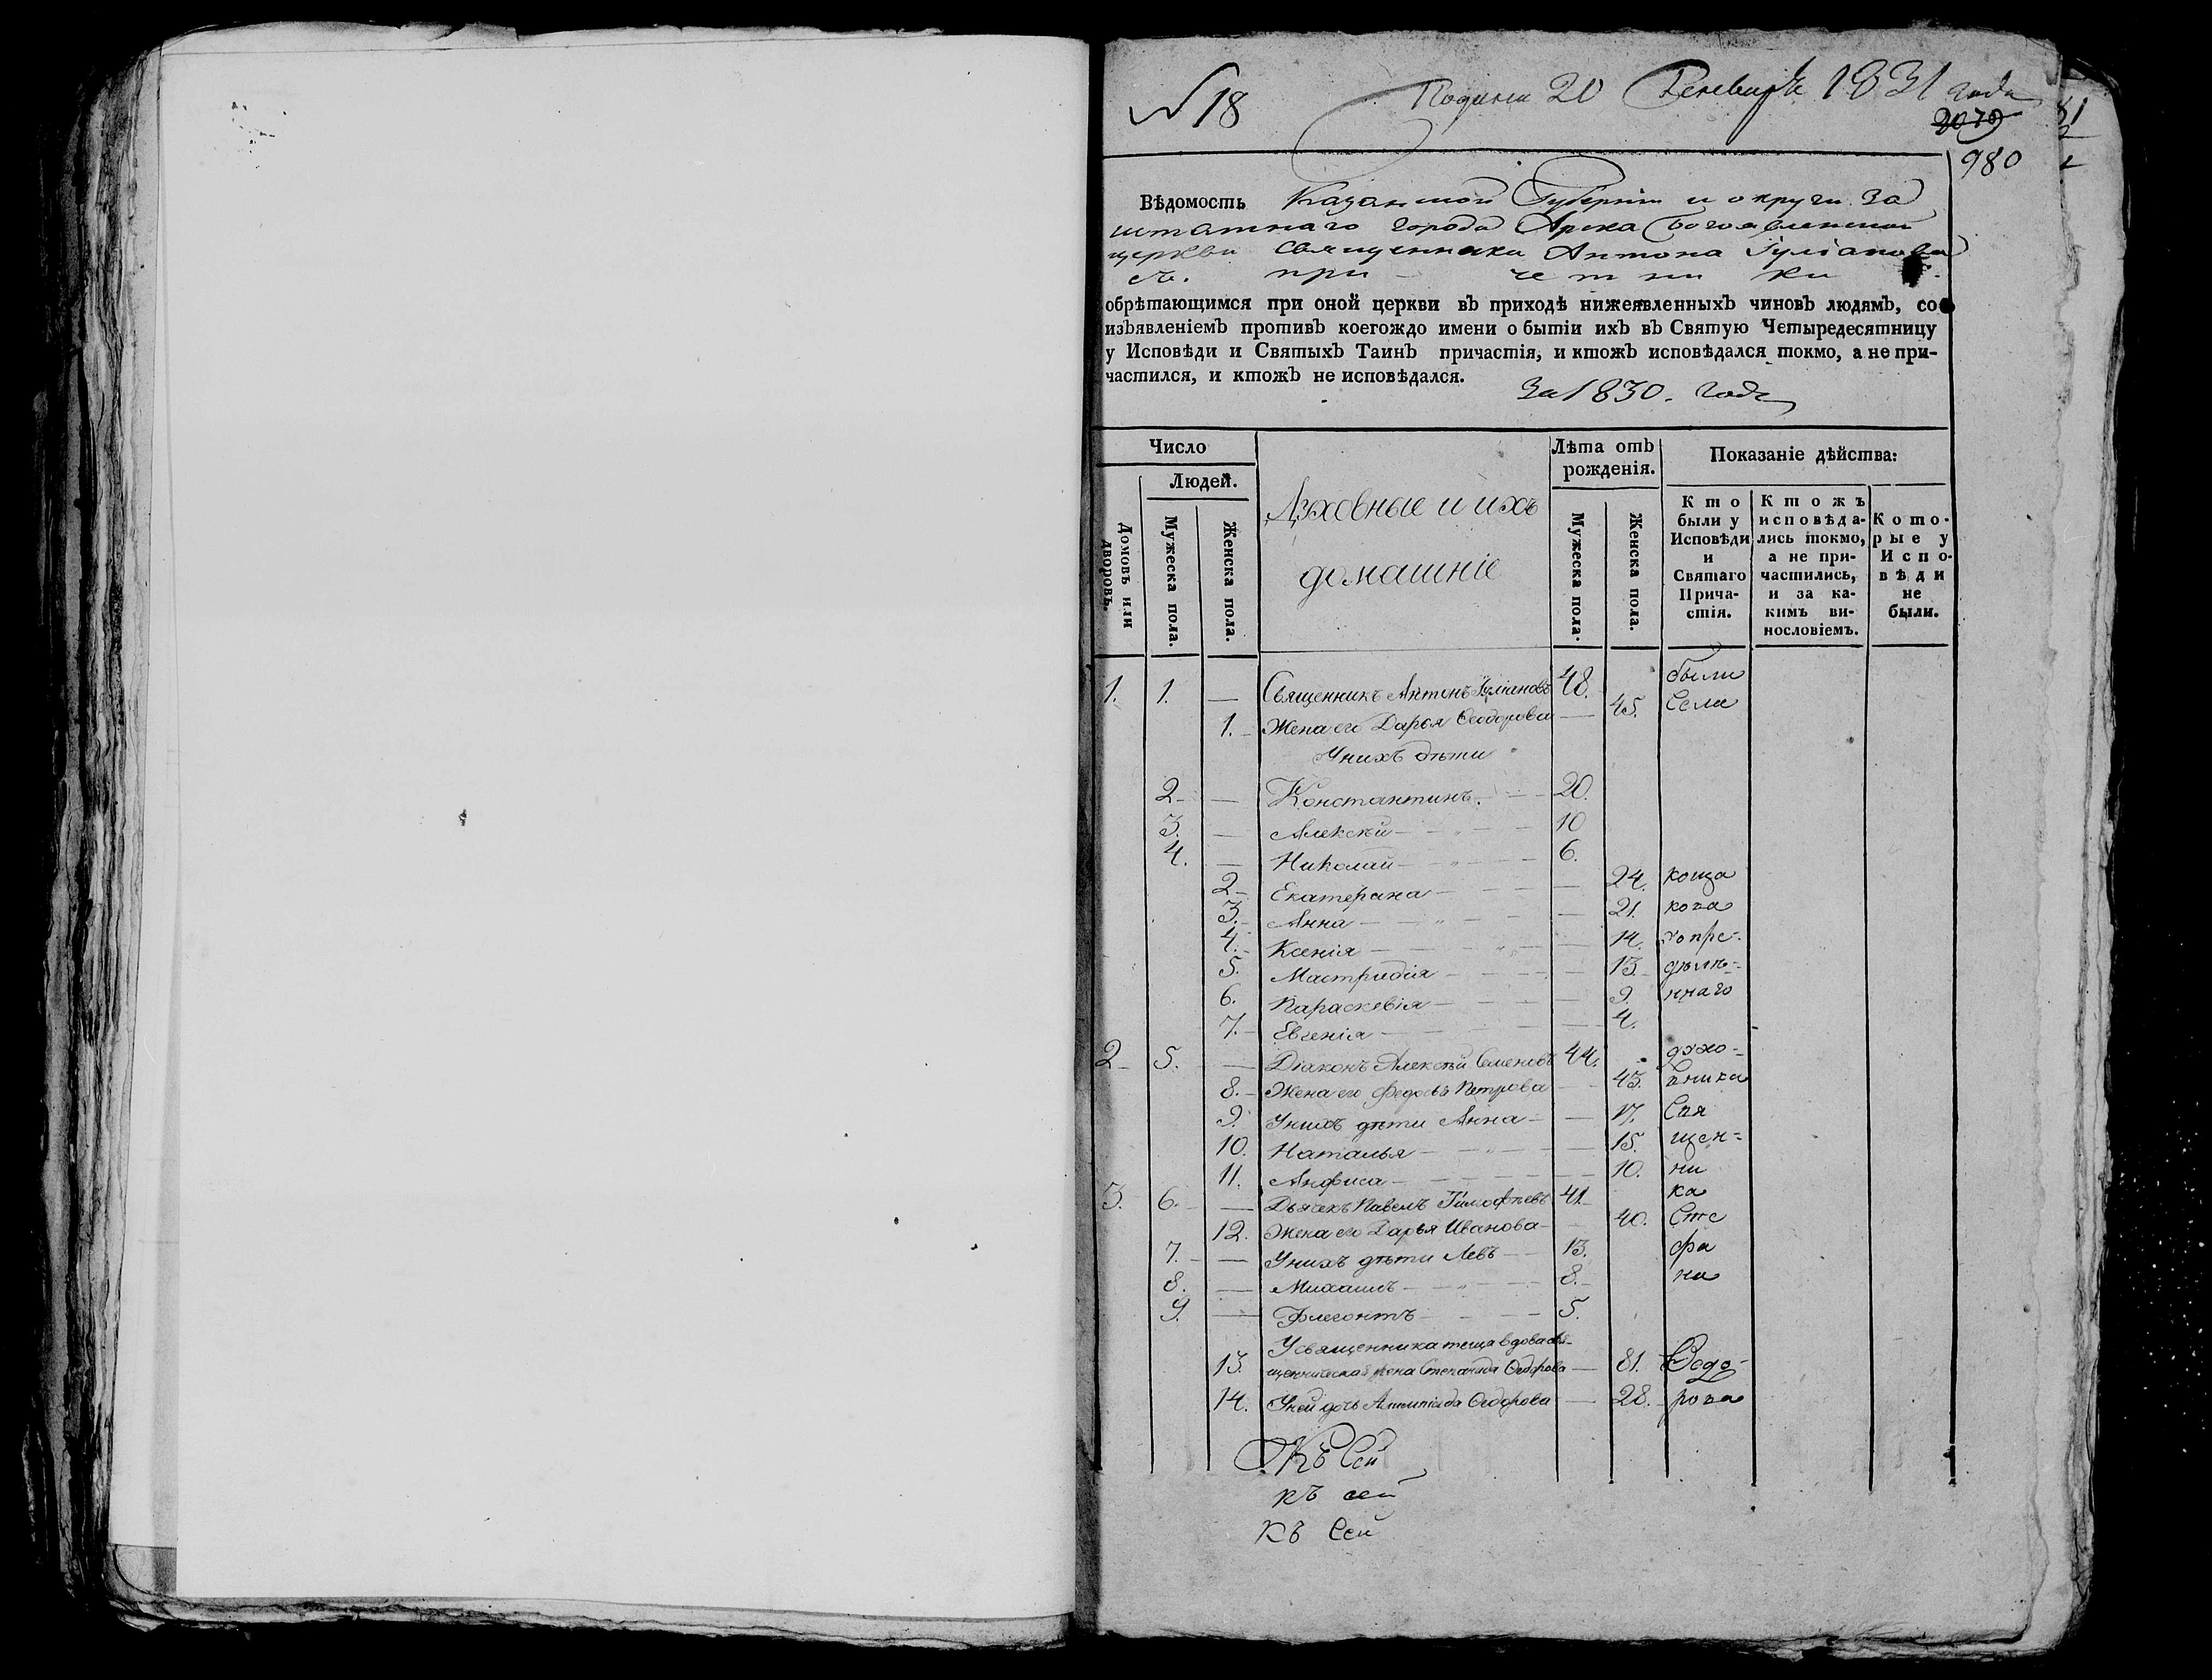 № 18
Подана 20 Генваря 1831 года
2079
980
Вѣдомость Казанской Губерніи и округи за
штатнаго города Арска Богоявленской
церкви священника Антона Іуліанова
съ при чет ни ки
обрѣтающимся при оной церкви въ приходѣ нижеявленныхъ чиновъ людямъ, со
изъявленіемъ противъ коегождо имени о бытіи ихъ въ Святую Четыредесятницу
у Исповѣди и Святыхъ Таинъ причастія, и ктожъ исповѣдался токмо, а не при-
частился, и ктожъ не исповѣдался.
За 1830. годъ
Число
Людей.
Домовъ или дворовъ.
Мужеска пола.
Женска пола.
Духовные и ихъ
домашніе
Лѣта отъ рожденія.
Мужеска пола.
Женска пола.
Показаніе дѣйства:
Кто были у Исповѣди и Святаго Причастія.
Ктожъ исповѣдались токмо, а не причастились, и за какимъ винословіемъ.
Которые у Исповѣди не были.
1. 1. — Священникъ Антонъ Іуліановъ 48. были
1. Жена его Дарья Ѳеодорова — 45. Села
У нихъ дѣти
2 — Константинъ. 20.
3. — Алексѣй 10
4. — Николай 6.
2 Екатерина — 24.
3. Анна — 21.
4. Ксенія — 14. х опре-
5. Мастридія — 13. дѣлѣ-
6. Параскевія — 9. ннаго
7. Евгенія — 4.
2 5. — Діаконъ Алексѣй Семеновъ 44. духо-
8. Жена его Федосья Петрова — 43. вника
9. У нихъ дѣти Анна — 17. Свя
10. Наталья — 15. щен-
11. Анфиса — 10. ни
3. 6. — Дьячекъ Павелъ Тимофѣевъ 41. ка
12. Жена его Дарья Иванова 40. Сте
7. — У нихъ дѣти Левъ 13. фа
8. — Михаилъ 8. на
9. — Флегонтъ 5.
У священника теща вдова свя-
13. щенническая жена Степанида Ѳеодорова — 81. Ѳедо-
14. У ней дочь Ѳеодорова — 28. рова
Къ Сей
къ сей
Къ Сей